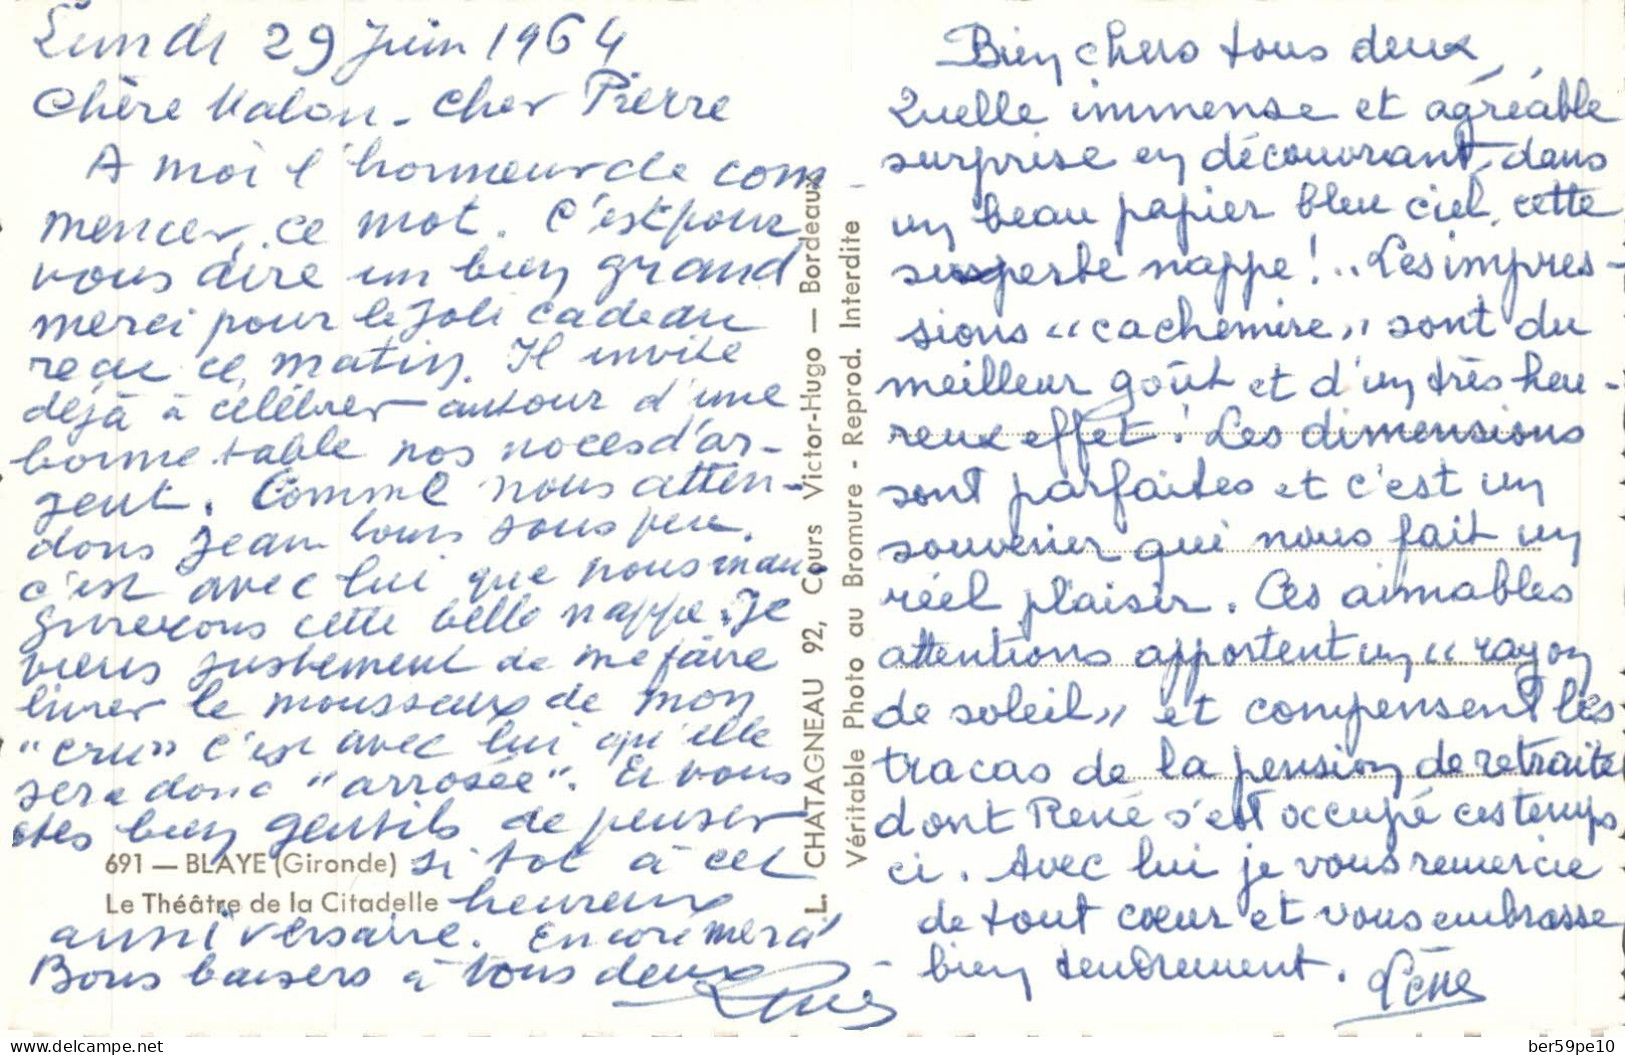 Lundi 29 Juin 1964
Chère Malou - Cher Pierre
A moi l'honneur de com-
mencer ce mot. C'est pour
vous dire un bien grand
merci pour le joli cadeau
reçu ce matin. Il invite
déjà à célébrer autour d'une
bonne table nos noces d'ar-
gent. Comme nous atten-
dons Jean Louis sous peu,
c'est avec lui que nous inau-
gurerons cette belle nappe. Je
viens justement de me faire
livrer le mousseux de mon
"cru" c'est avec lui qu'elle
sera donc "arrosée". Et vous
êtes bien gentils de penser
si tot à cet
heureux
anniversaire. Encore merci
Bons baisers à tous deux
691 — BLAYE (Gironde)
Le Théâtre de la Citadelle
L. CHATAGNEAU 92, Cours Victor-Hugo — Bordeaux
Véritable Photo au Bromure - Reprod. Interdite
Bien chers tous deux,
Quelle immense et agréable
surprise en découvrant, dans
un beau papier bleu ciel, cette
superbe nappe!.. Les impres-
sions "cachemire" sont du
meilleur goût et d'un très heu-
reux effet! Les dimensions
sont parfaites et c'est un
souvenir qui nous fait un
réel plaisir. Ces aimables
attentions apportent un "rayon
de soleil" et compensent les
tracas de la pension de retraite
dont René s'est occupé ces temps
ci. Avec lui je vous remercie
de tout cœur et vous embrasse
bien tendrement.
delcampe.net
ber59pe10